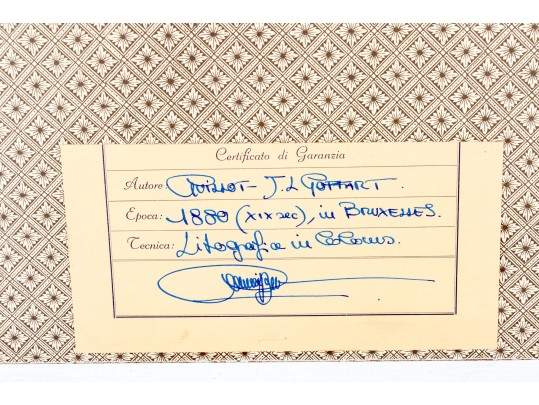 Certificato di Garanzia
Autore: Guillot - J. L Goffart.
Epoca: 1880 (XIX sec), in Bruxelles.
Tecnica: Litografia in Colours.